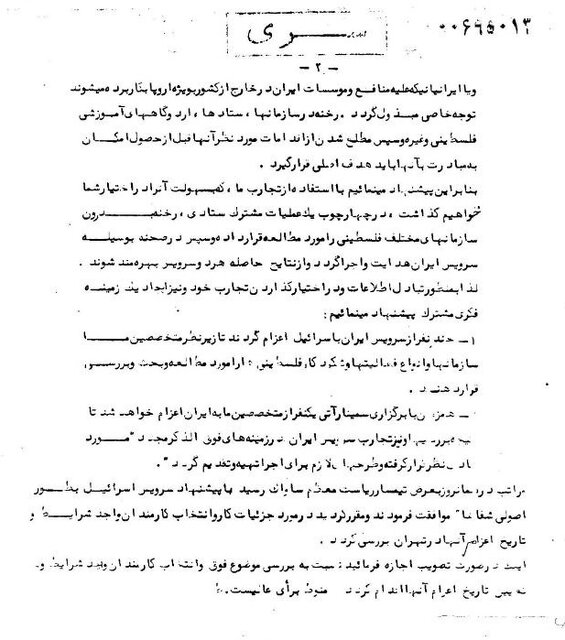 ۰۰۶۹۵۰۱۳
ســـری
- ۲ -
ویا ایرانیانیکه علیه منافع وموسسات ایران در خارج از کشور بویژه اروپا بکار برده میشوند
توجه خاصی مبذول گردد . رخنه در سازمانها ، ستادها ، ارد وگاههای آموزشی
فلسطینی وغیره وسپس مطلع شدن از اقدامات مورد نظر آنها قبل از حصول امکان
به مبادرت بآنها باید هدف اصلی قرار گیرد .
بنابر این پیشنهاد مینمائیم با استفاده از تجارب ما ، که بسهولت آنرا در اختیار شما
خواهیم گذاشت ، در چهارچوب یک عملیات مشترک ستادی ، رخنه بـــدرون
سازمانهای مختلف فلسطینی را مورد مطالعه قرار داده وسپس در صحنه بوسیلـــه
سرویس ایران هدایت واجرا گردد واز نتایج حاصله هر دو سرویس بهره مند شوند .
لذا بمنظور تبادل اطلاعات ودر اختیار گذاردن تجارب خود ونیز ایجاد یک زمینه
فکری مشترک پیشنهاد مینمائیم :
۱ – چند نفر از سرویس ایران با سرائیل اعزام گردند تا زیر نظر متخصصین مــا
سازمانها وانواع فعالیتها وشگرد کار فلسطینی را مورد مطالعه وبحث وبررســی
قرار دهند .
– همزمان با برگزاری سمینار آتی یکنفر از متخصصین ما به ایران اعزام خواهد شد تا
تجارب سرویس ایران در زمینه های فوق الذکر مجدداً مــورد
نظر قرار گرفته وطرحهای لازم برای اجرا تهیه وتقدیم گردد " .
مراتب در همانروز بعرض تیمسار ریاست معظم ساواک رسید با پیشنهاد سرویس اسرائیـل بطــور
اصولی شفاها" موافقت فرمودند ومقرر گردید در مورد جزئیات کار وانتخاب کارمندان واجد شرایــط و
تاریخ اعزام آنها در تهران بررسی گردد .
در صورت تصویب اجازه فرمائید نسبت به بررسی موضوع فوق وانتخاب کارمندان واجد شرایط و
تعیین تاریخ اعزام آنها اقدام گردد منوط برأی عالیست .